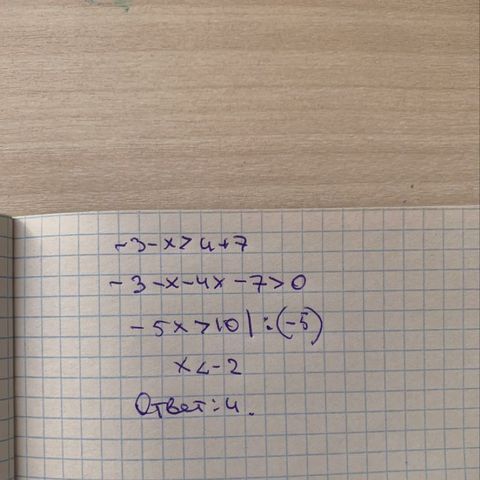 -3-x>4+7
-3-x-4x-7>0
-5x>10|:(-5)
x<-2
Ответ: 4.